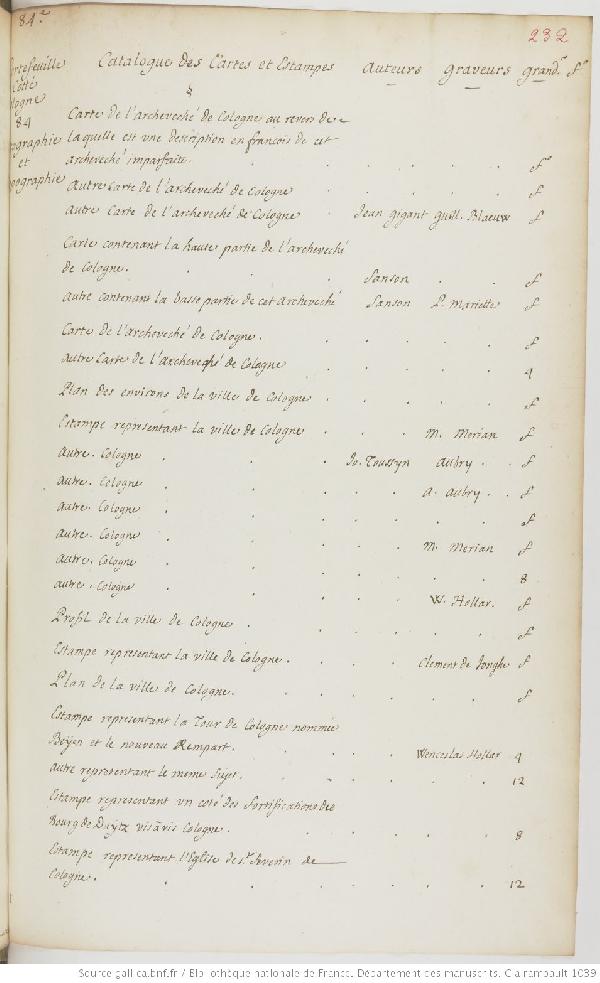 84.e
232
Portefeuille
Cotté
Cologne
84
Geographie
et
Topographie
Catalogue des Cartes et Estampes Auteurs graveurs grand.r f.o
Carte de l'archeveché de Cologne au revers de
laquelle est vne description en francois de cet
archeveché imparfaite. f.o
Autre Carte de l'archeveché de Cologne f
autre Carte de l'archeveché de Cologne Jean Gigant Guill. Blaeuw f
Carte contenant la haute partie de l'archeveché
de Cologne. Sanson f
autre contenant la basse partie de cet archeveché Sanson P. Mariette f
Carte de l'archeveché de Cologne. f
autre Carte de l'archeveché de Cologne 4
Plan des environs de la ville de Cologne f
Estampe representant la ville de Cologne M. Merian f
autre. Cologne Jo. Toussyn Aubry f
autre. Cologne A. Aubry f
autre. Cologne f
autre. Cologne M. Merian f
autre. Cologne 8
autre. Cologne W. Hollar. f
Profil de la ville de Cologne f
Estampe representant la ville de Cologne. Clement de Jonghe f
Plan de la ville de Cologne. f
Estampe representant la Tour de Cologne nommée
Beÿen et le nouveau Rempart. Wenceslas Hollar 4
autre representant le meme sujet. 12
Estampe representant vn coté des fortifications de
Bourg de Duÿtz visàvis Cologne. 8
Estampe representant l'Eglise de S.t Severin de
Cologne. 12
Source gallica.bnf.fr / Bibliothèque nationale de France. Département des manuscrits. Clairambault 1039